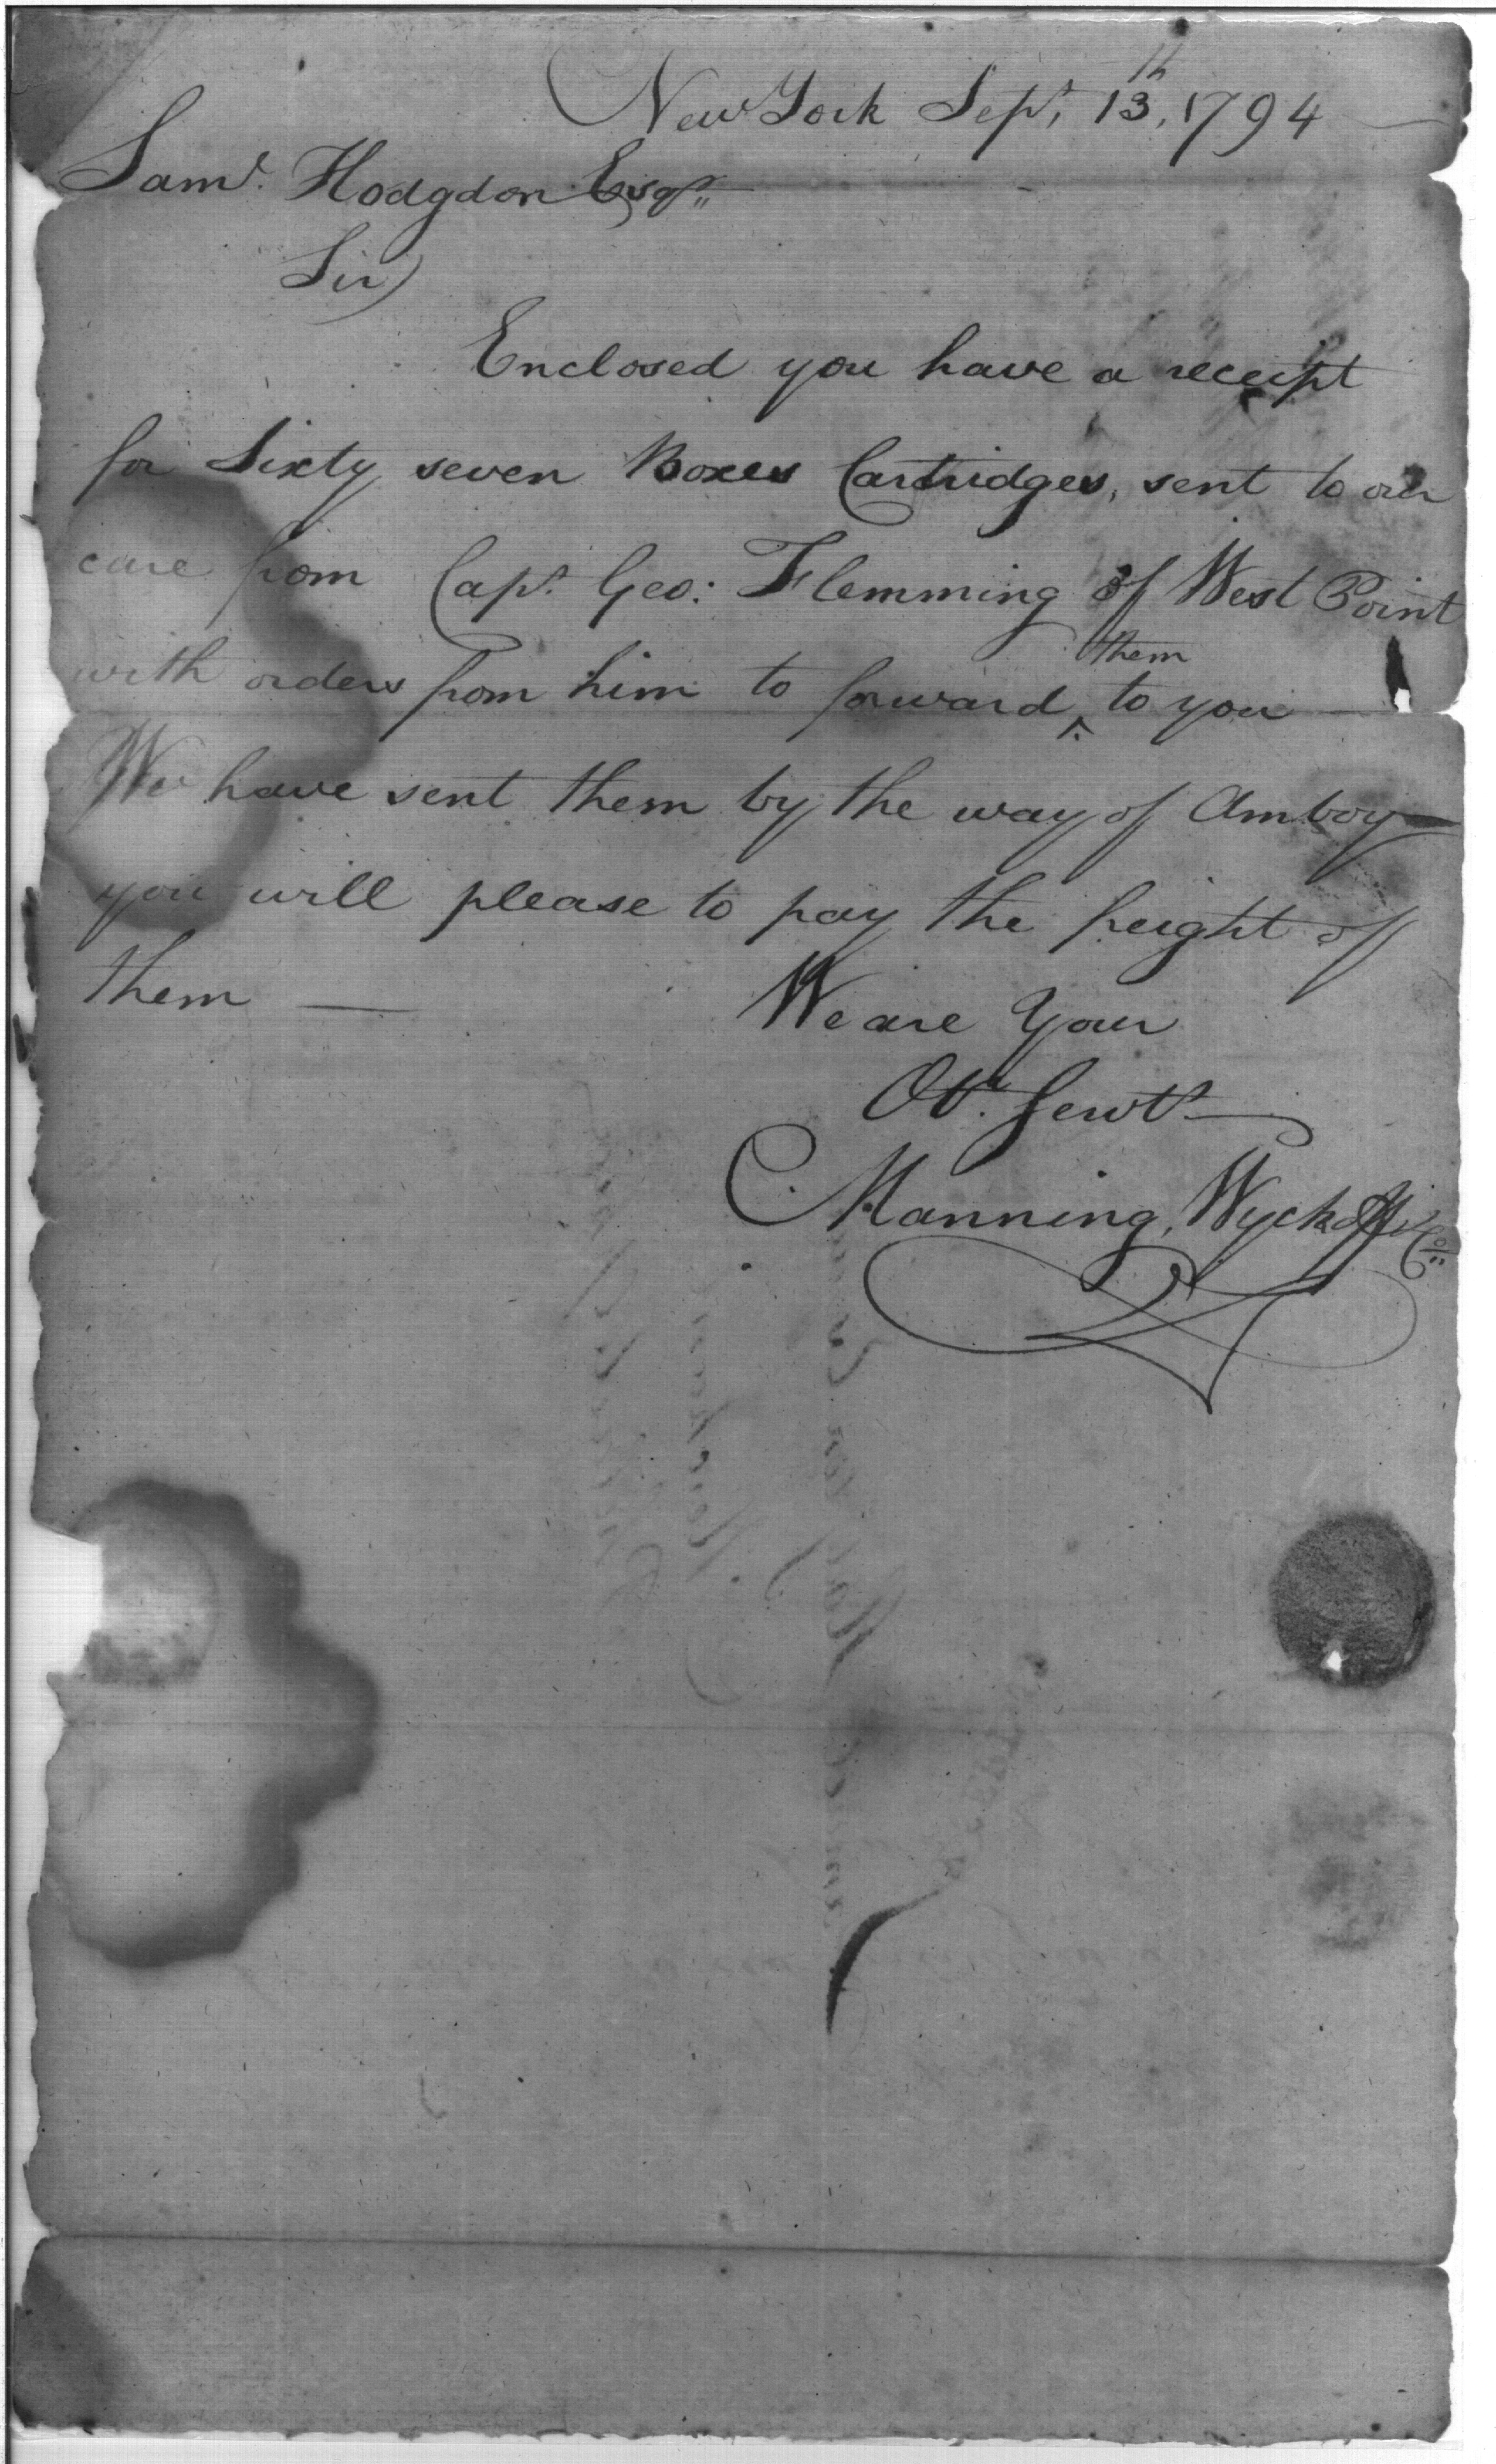 New York Sept. 13th, 1794
Saml. Hodgdon Esqr.
Sir
Enclosed you have a receipt
for Sixty seven Boxes Cartridges, sent to our
care from Capt. Geo: Flemming of West Point
with orders from him to forward ^them to you —
We have sent them by the way of Amboy —
you will please to pay the freight of
them —
We are Your
Obt. Servts
Manning, Wyckoff & Co.